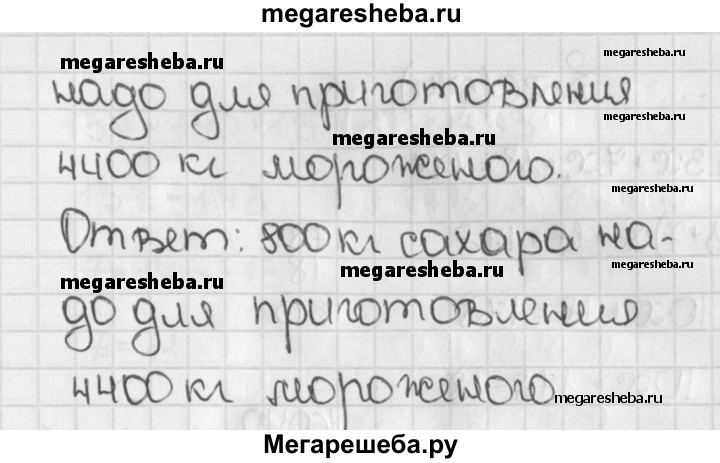 megaresheba.ru
megaresheba.ru
megaresheba.ru
надо для приготовления
megaresheba.ru
4400 кг мороженого.
megaresheba.ru
Ответ: 800 кг сахара на-
megaresheba.ru
megaresheba.ru
до для приготовления
4400 кг мороженого
megaresheba.ru
Мегарешеба.ру